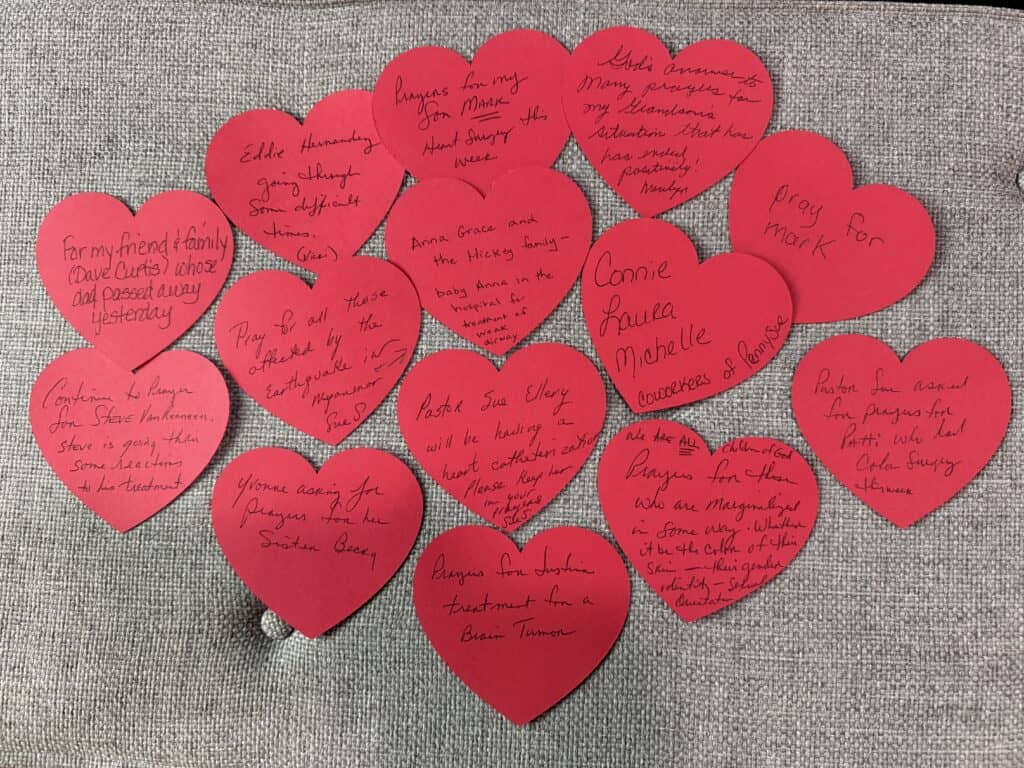 Prayers for my
Son MARK
Heart Surgery this
week
God's answer to
Many prayers for
my Grandson's
situation that has
has ended
positively!
Marilyn
Eddie Hernandez
going through
Some difficult
times.
Pray for
mark
For my friend & family
(Dave Curtis) whose
dad passed away
yesterday
Anna Grace and
the Hickey family –
baby Anna in the
hospital for
treatment of
weak
airway
Connie
Laura
Michelle
coworkers of PennySue
Pray for all those
affected by the
Earthquake in
Myanmar
Sue S.
Continue to Prayer
for STEVE
Steve is going thru
some reactions
to his treatment
Pastor Sue Ellery
will be having a
heart catheterization
Please keep her
in your
prayers
Sue S
Pastor Sue asked
for prayers for
Patti who had
Colon Surgery
this week
Yvonne asking for
prayers for her
Sister Becky
We ARE ALL children of God
Prayers for those
who are marginalized
in some way. Whether
it be the color of their
skin – their gender
identity – Sexual
Orientation
Prayers for
treatment for a
Brain Tumor